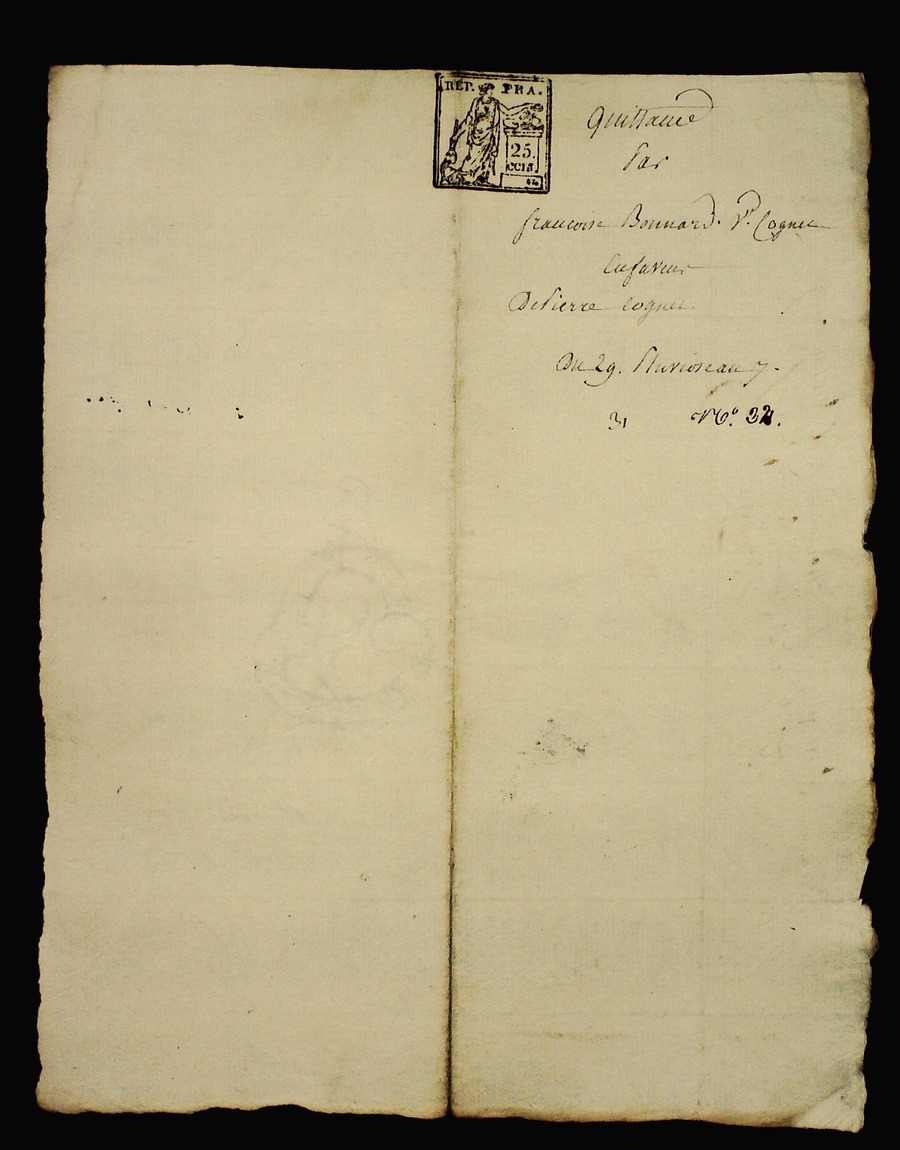 REP. FRA.
25.
CEN.
Quittance
Par
francoise Bonnard. Ve. Cognet
Enfaveur
De Pierre Cognet
Du 29. Pluviose an 7.
31 No. 32.